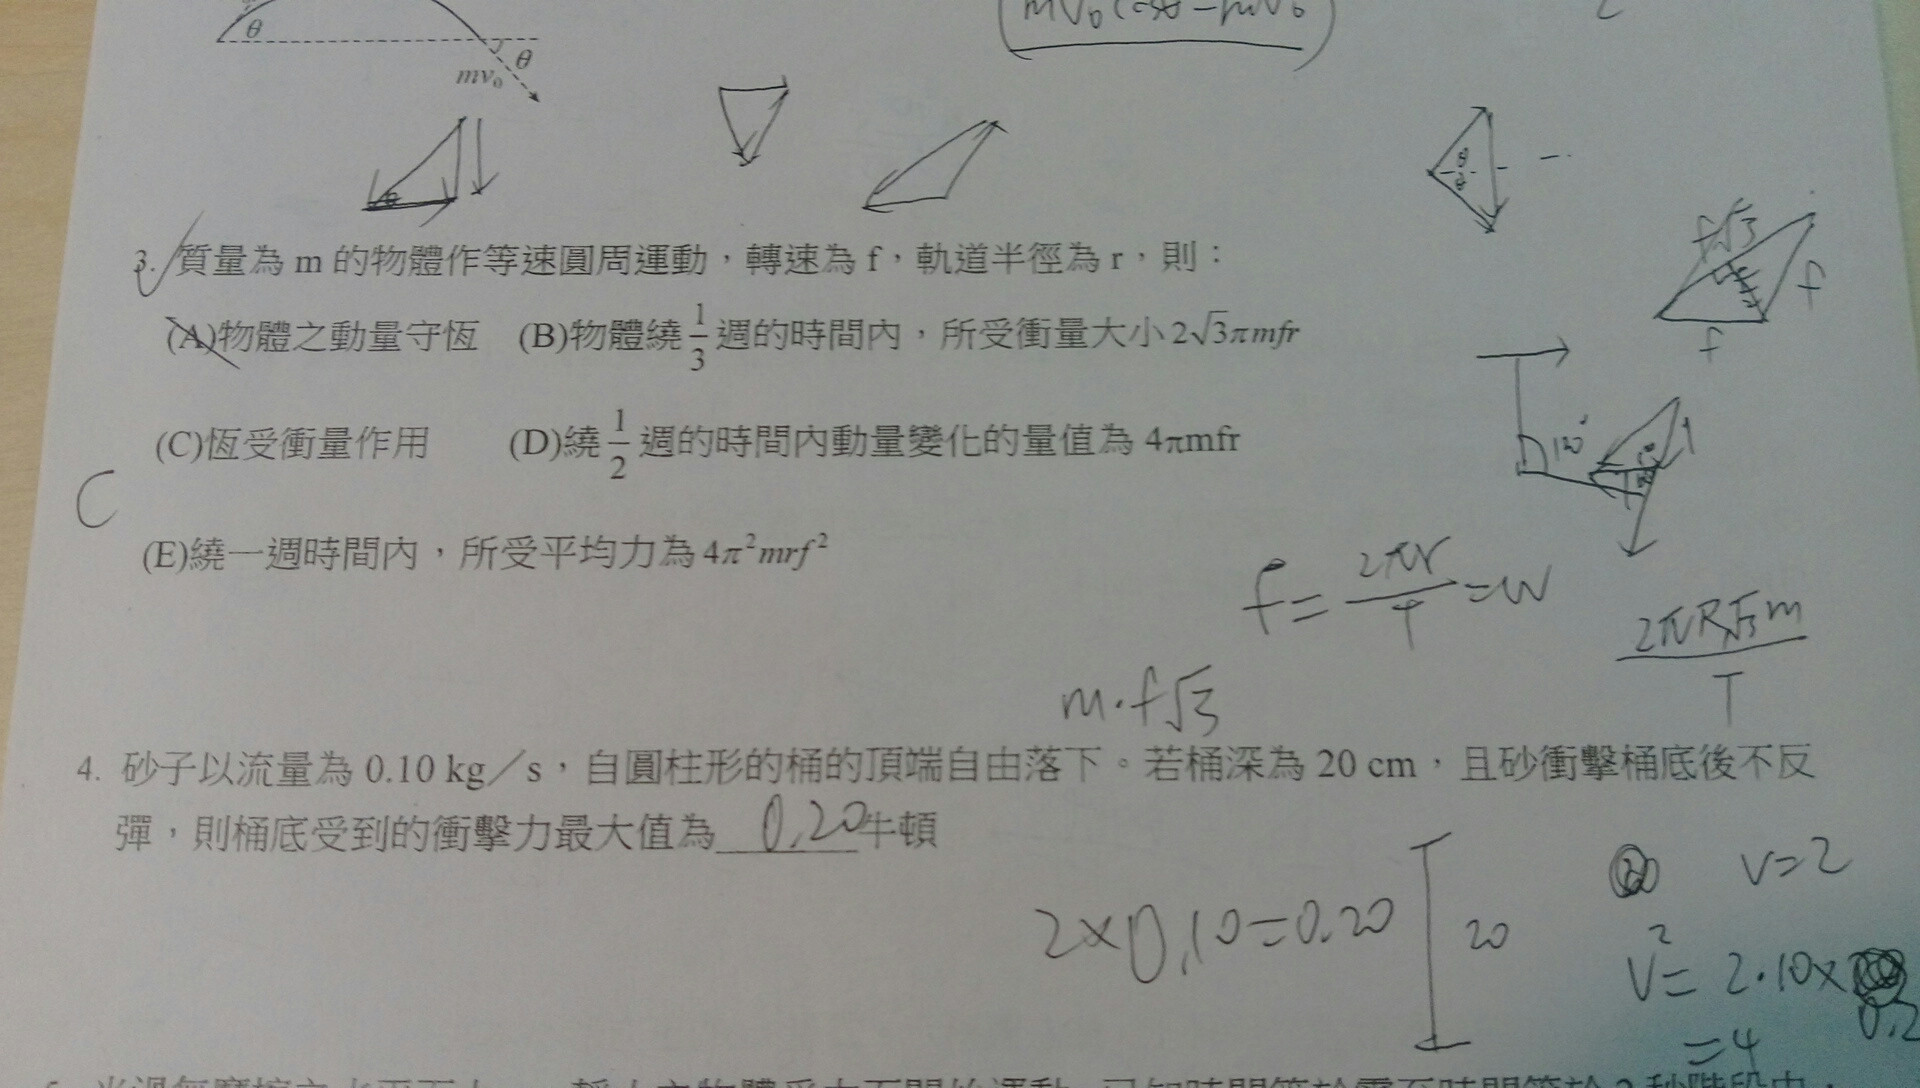 θ
θ
mv₀
3. 質量為 m 的物體作等速圓周運動，轉速為 f，軌道半徑為 r，則：
(A)物體之動量守恆 (B)物體繞 1/3 週的時間內，所受衝量大小 2√3πmfr
(C)恆受衝量作用 (D)繞 1/2 週的時間內動量變化的量值為 4πmfr
C
(E)繞一週時間內，所受平均力為 4π²mrf²
θ
θ
θ
f√3
f
f
120°
f = 2πr/T = w
2πR√3m/T
m·f√3
4. 砂子以流量為 0.10 kg／s，自圓柱形的桶的頂端自由落下。若桶深為 20 cm，且砂衝擊桶底後不反
彈，則桶底受到的衝擊力最大值為 0.20 牛頓
2×0.10=0.20
20
v=2
v²= 2·10×0.2
=4